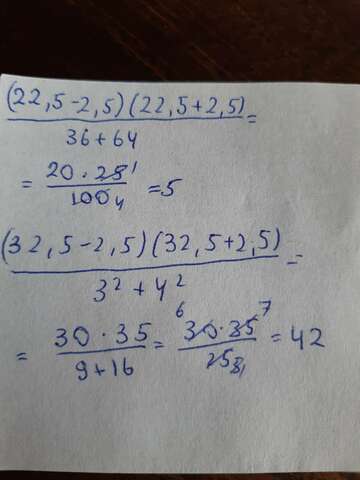 (22,5-2,5)(22,5+2,5)
36+64
=
= 20·25 1
100 4
=5
(32,5-2,5)(32,5+2,5)
3² + 4²
=
= 30·35
9+16
= 6 30·35 7
25 5 1
= 42